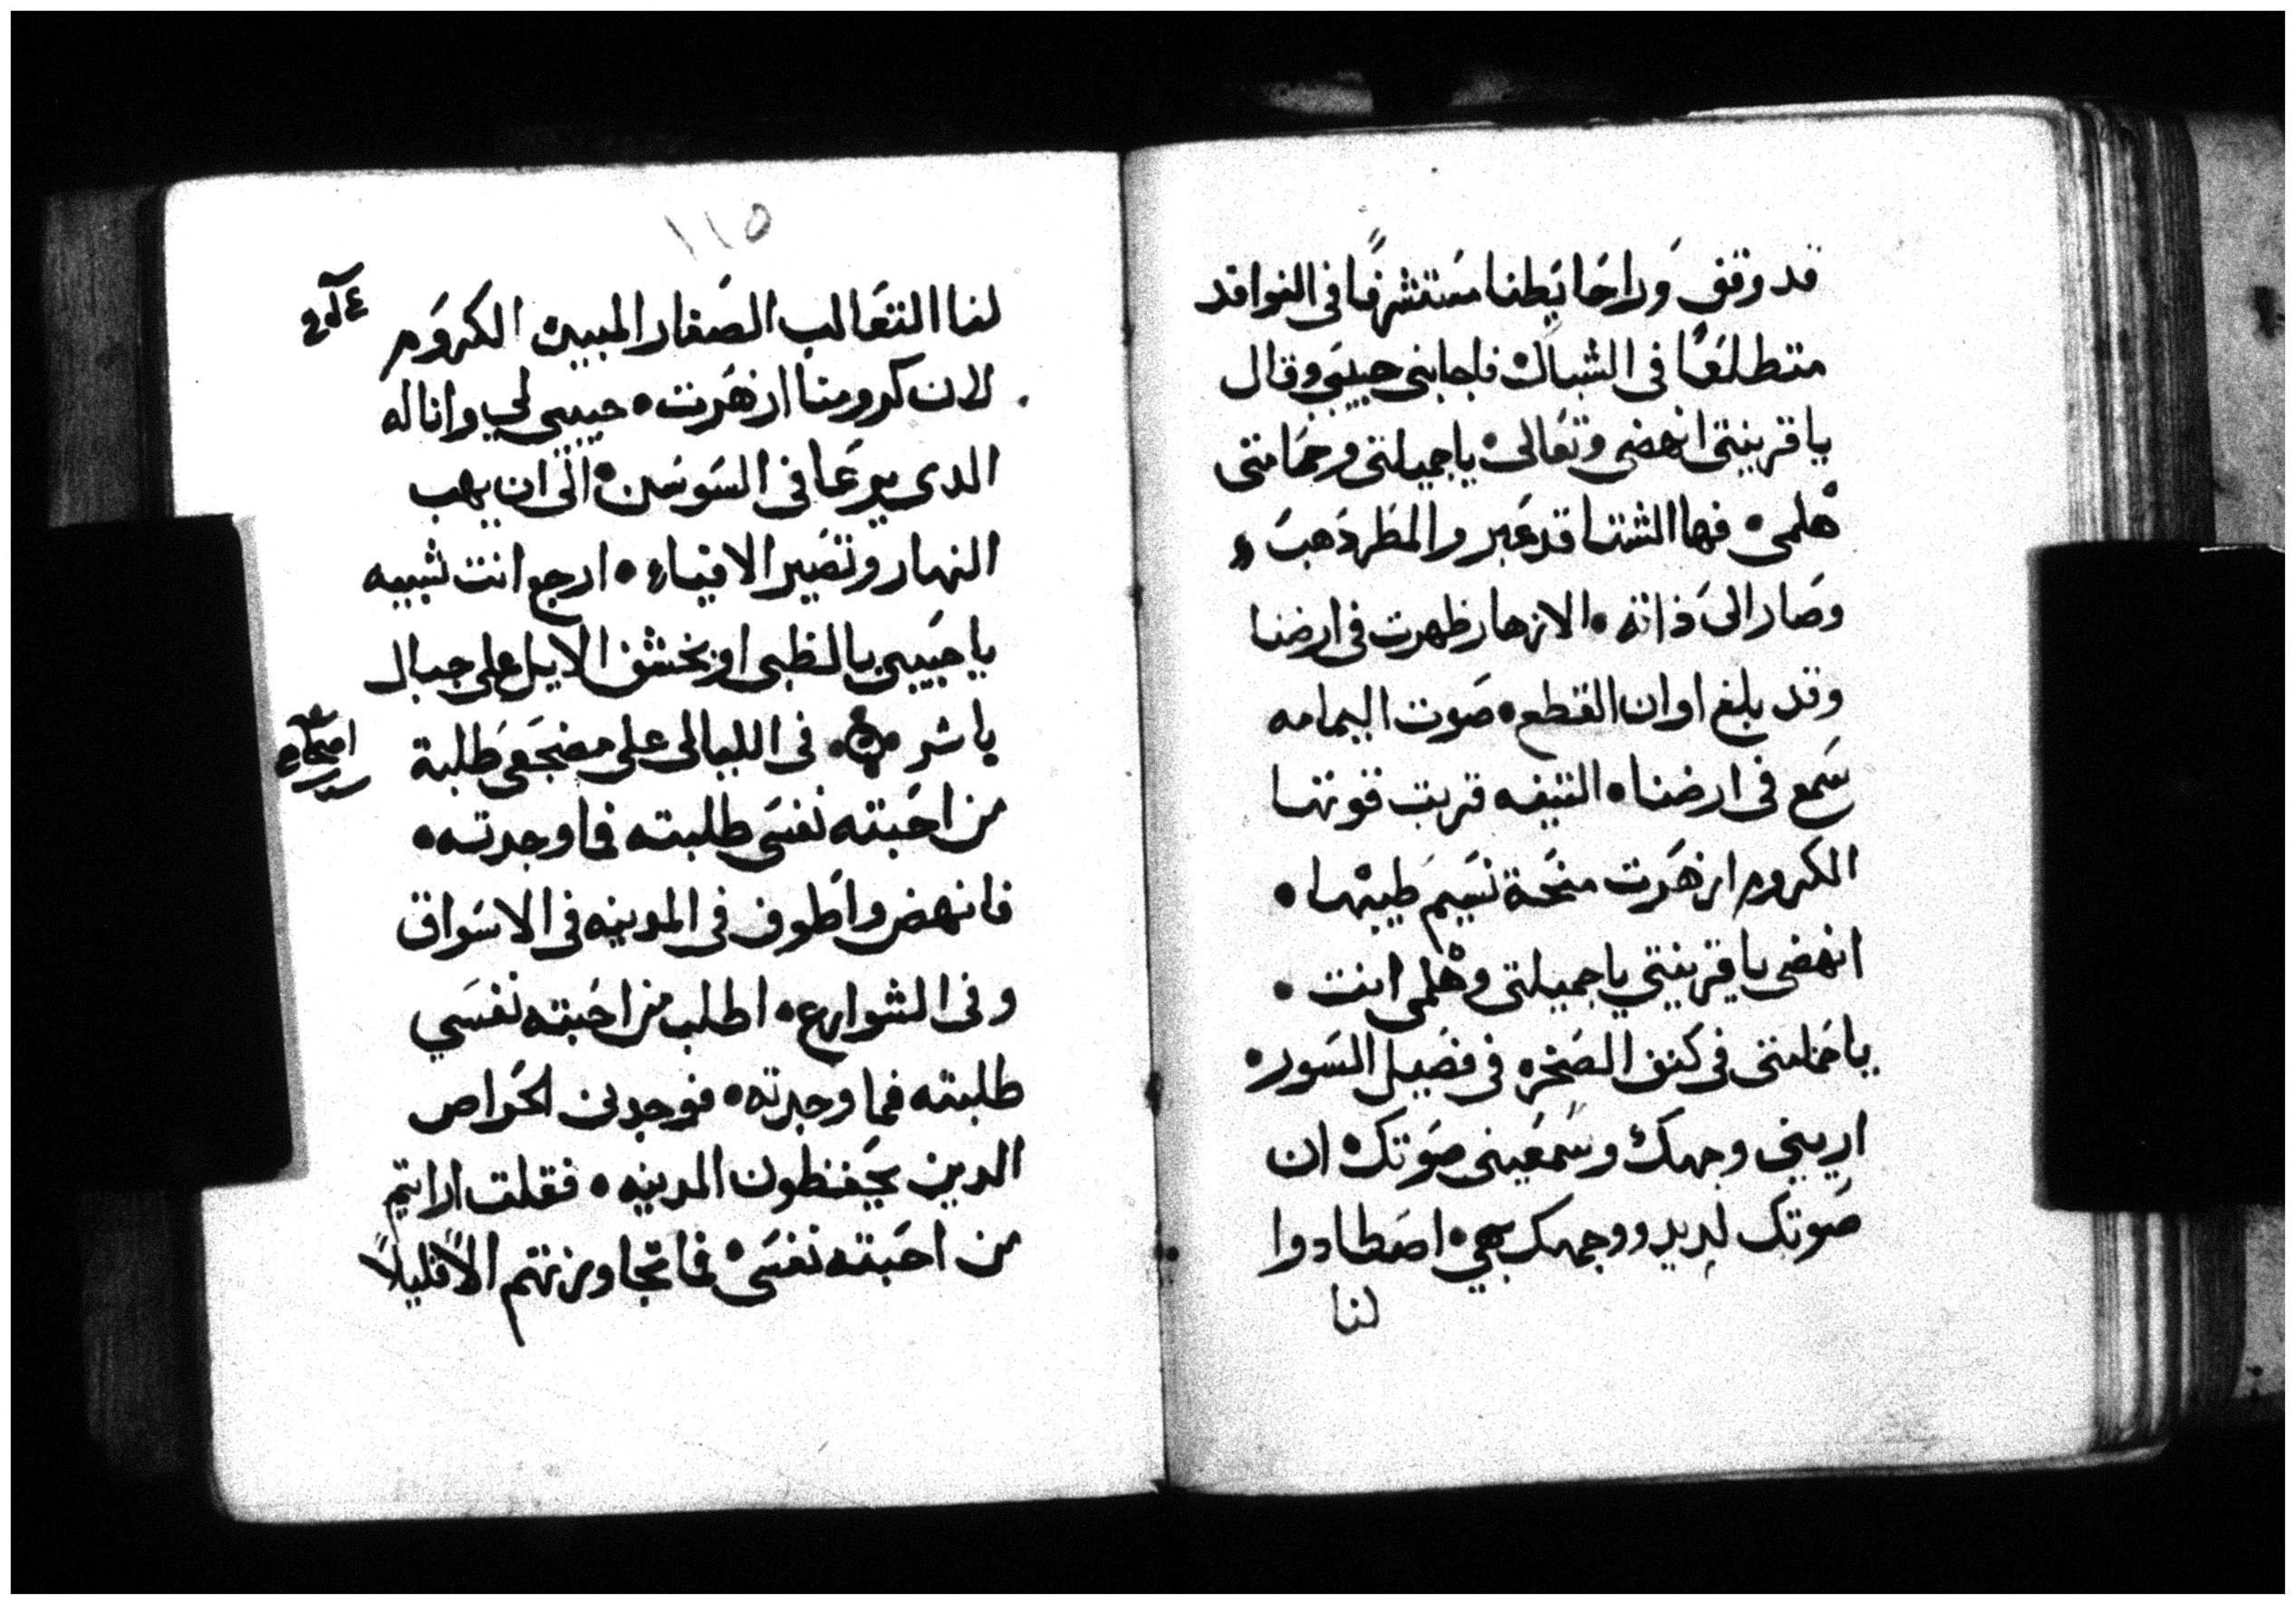 قد وقف وراحايطنا مستشرفًا فى النوافد
متطلعًا فى الشباك فاجابنى حبيبى وقال
يا قرينتى انهضى وتعالى يا جميلتى وحمامتى
هلمى • فها الشتا قد عبر والمطر دهب •
وصار الى ذاته • الازهار ظهرت فى ارضنا
وقد بلغ اوان القطع • صوت اليمامه
سمع فى ارضنا • التينه قربت قوتها
الكروم ازهرت منحة نسيم طيبها •
انهضى يا قرينتي يا جميلتى وهلمى انت •
يا حمامتى فى كنف الصخره فى فصيل السور •
اريني وجهك وسمعينى صوتك ان
صوتك لديد ووجهك بهي • اصطادوا
لنا
١١٥
لنا التعالب الصغار المبيين الكروم
لان كرومنا ازهرت • حبيبى لي وانا له
الدى يرعا فى السوسن • الى ان يهب
النهار وتصير الافياء • ارجع انت شبيه
يا حبيبى بالظبى او بخشف الايل على جبال
باشر • فى الليالى على مضجعى طلبة
من احبته نفسى طلبته فما وجدته •
فانهض واطوف فى المدينه فى الاسواق
وفى الشوارع • اطلب من احبته نفسي
طلبته فما وجدته • فوجدنى الحراص
الدين يحفظون المدينه • فقلت ارايتم
من احبته نفسى • فما تجاوزتهم الاً قليلاً
اصحاح